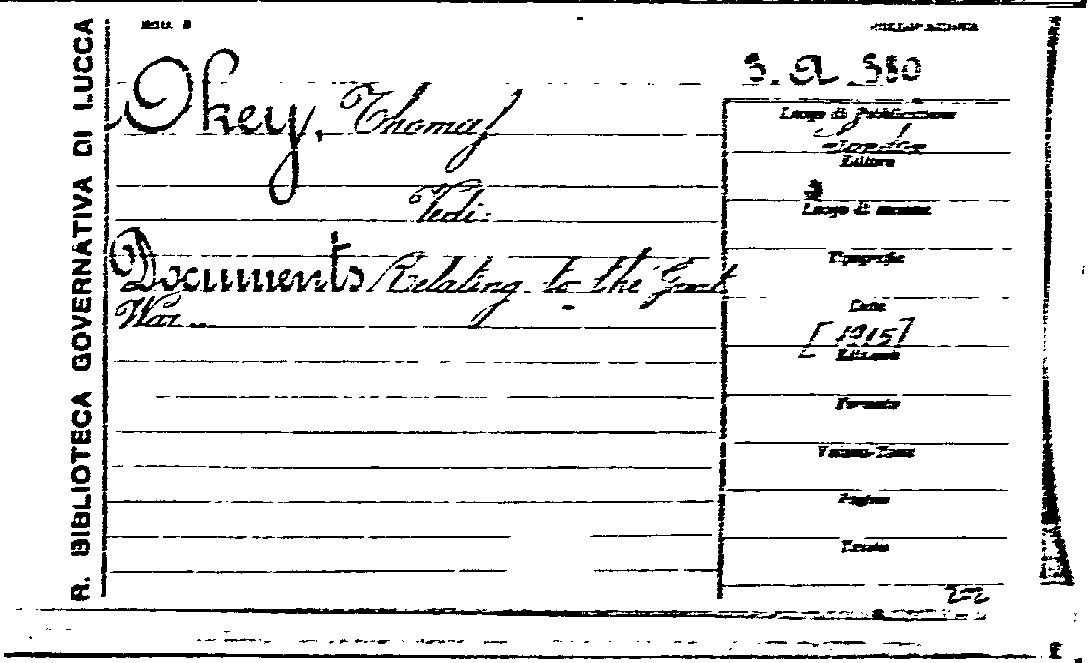 R. BIBLIOTECA GOVERNATIVA DI LUCCA
Okey, Thomas
Vedi:
Documents Relating to the Great
War...
Luogo di Pubblicazione
London
Editore
Luogo di stampa
Tipografia
Data
[1915]
Edizione
Formato
Volumi-Tomi
Pagine
22